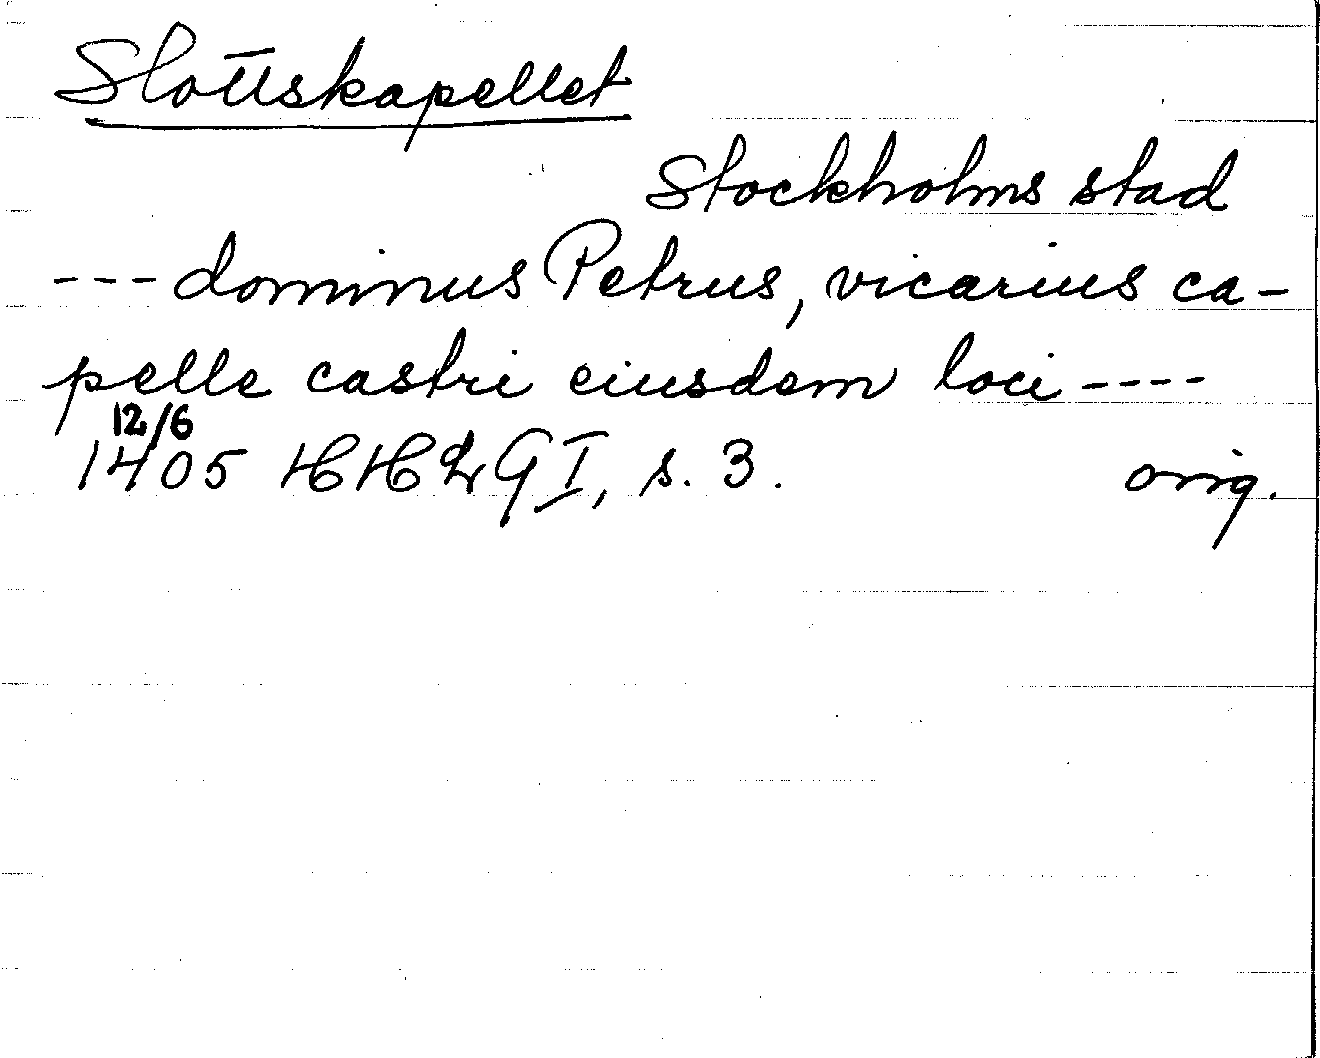 Slottskapellet
Stockholms stad
--- dominus Petrus, vicarius ca-
pelle castri eiusdem loci ----
12/6
1405 HHLG I, s. 3. orig.